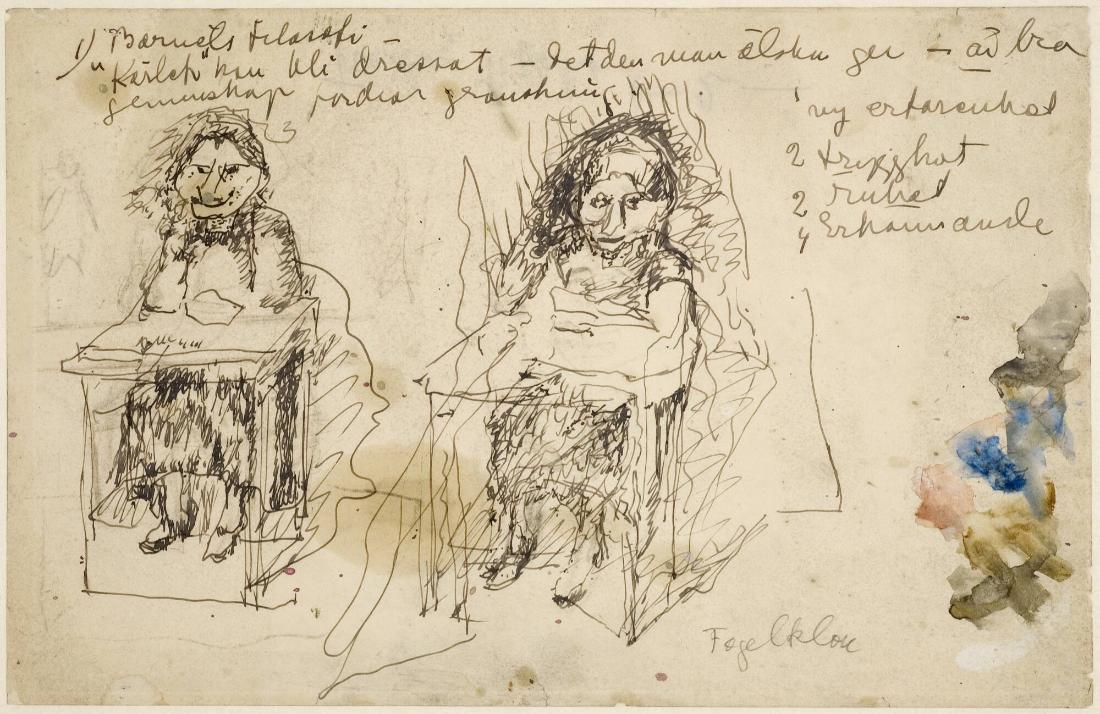 1) Barnets filosofi –
"Kärlek" kan bli dressat – det den man älska ger – är bra
gemenskap fordrar
ny erfarenhet
2 trygghet
2
4 Erkännande
Fogelklou